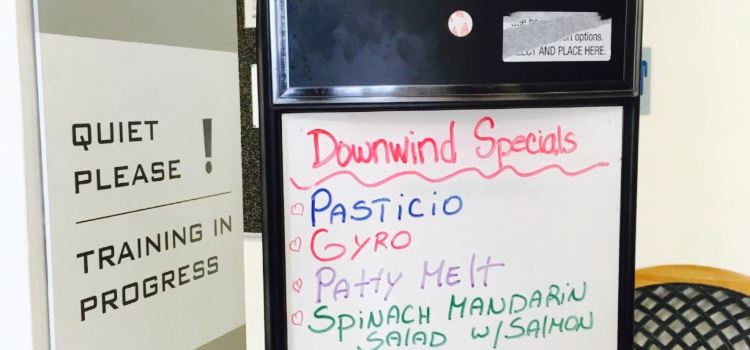 QUIET
PLEASE !
TRAINING IN
PROGRESS
options.
AND PLACE HERE.
Downwind Specials
PASTICIO
GYRO
PATTY MELT
SPINACH MANDARIN
SALAD W/SALMON